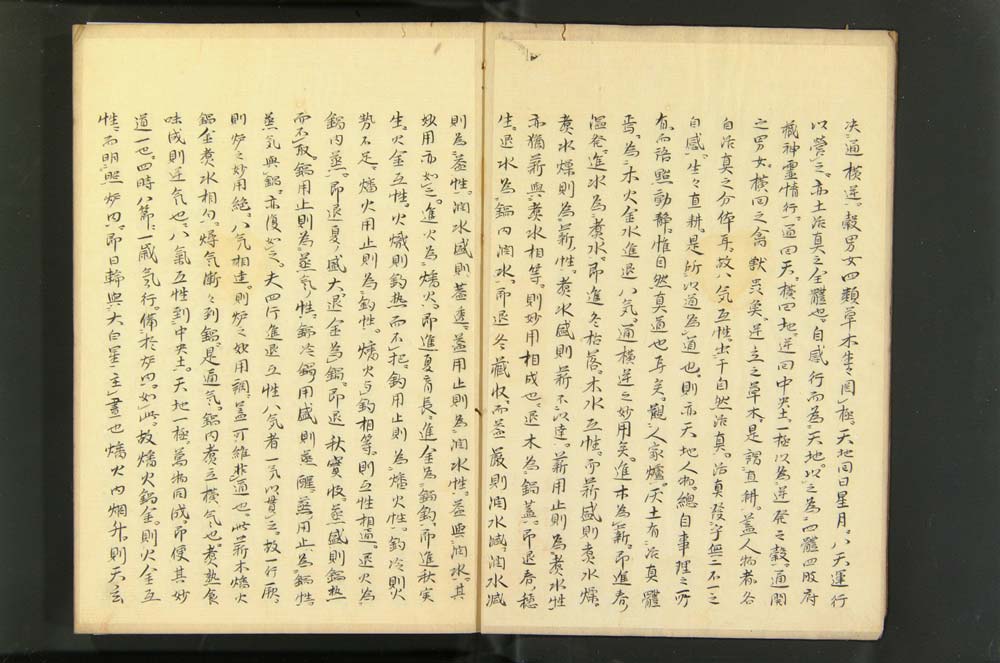 決通橫逆。穀男女四類草木生々罔極。天地回日星月。八天運行
以營之。亦土活真之全體也。自感行而為天地。以之為四體四肢府
藏神靈情行。通回天。橫回地。逆回中央土。一極以為逆發之穀。通開
之男女。橫回之禽獸。矣逆立之草木。是謂直耕。蓋人物者。各
自活真之分体耳。故八气互性。出于自然活真。活真發字無二不一之
自感。生々直耕。是所以道為道也。則亦天地人物。總自事理之所
有。而語黙動靜。惟自然真道也与矣。觀人家爐。灰土有活真體
焉。為木火金水進退八气。通橫逆之妙用矣。進木為薪。即進春
溫發。進水為煮水。即進冬枯落。木水互性。而薪盛則煮水燥。
煮水燥則為薪性。煮水盛則薪不以達。薪用止則為煮水性
亦猶薪與煮水相等。則妙用相成也。退木為鍋蓋。即退春穗
生。退水為鍋內潤水。即退冬藏收。而蓋嚴則潤水滅。潤水滅
則為蓋性。潤水盛則蓋透。蓋用止則為潤水性。蓋與潤水。其
妙用亦如之。進火為燔火。即進夏育長。進金為鍋鈎。即進秋実
生。火金互性。火熾則鈎熱而不把。鈎用止則為燔火性。鈎冷則火
势不足。燔火用止則為鈎性。燔火与鈎相等。則互性相通。退火為
鍋內蒸。即退夏盛大。退金為鍋。即退秋實收。蒸盛則鍋熱
而不取。鍋用止則為蒸气性。鍋冷鍋用盛則蒸醺。蒸用止為鍋性。
蒸气與鍋。亦復如之。夫四行進退互性八气者一気以貫之。故一行厥。
則炉之妙用絕。八気相達。則炉之妙用調。蓋可維非通也。此薪木燔火
鍋金煮水相勾。燖気漸々到鍋。是通気。鍋內煮立橫气也。煮熟食
味成則逆气也。八氣互性到中央土。天地一極。萬物同成。即便其妙
道一也。四時八節。一歲気行。備於炉內。如此。故燔火鍋金。則火金互
性。而明照炉內。即日輪與大白星。主晝也。燔火內烟升。則天玄